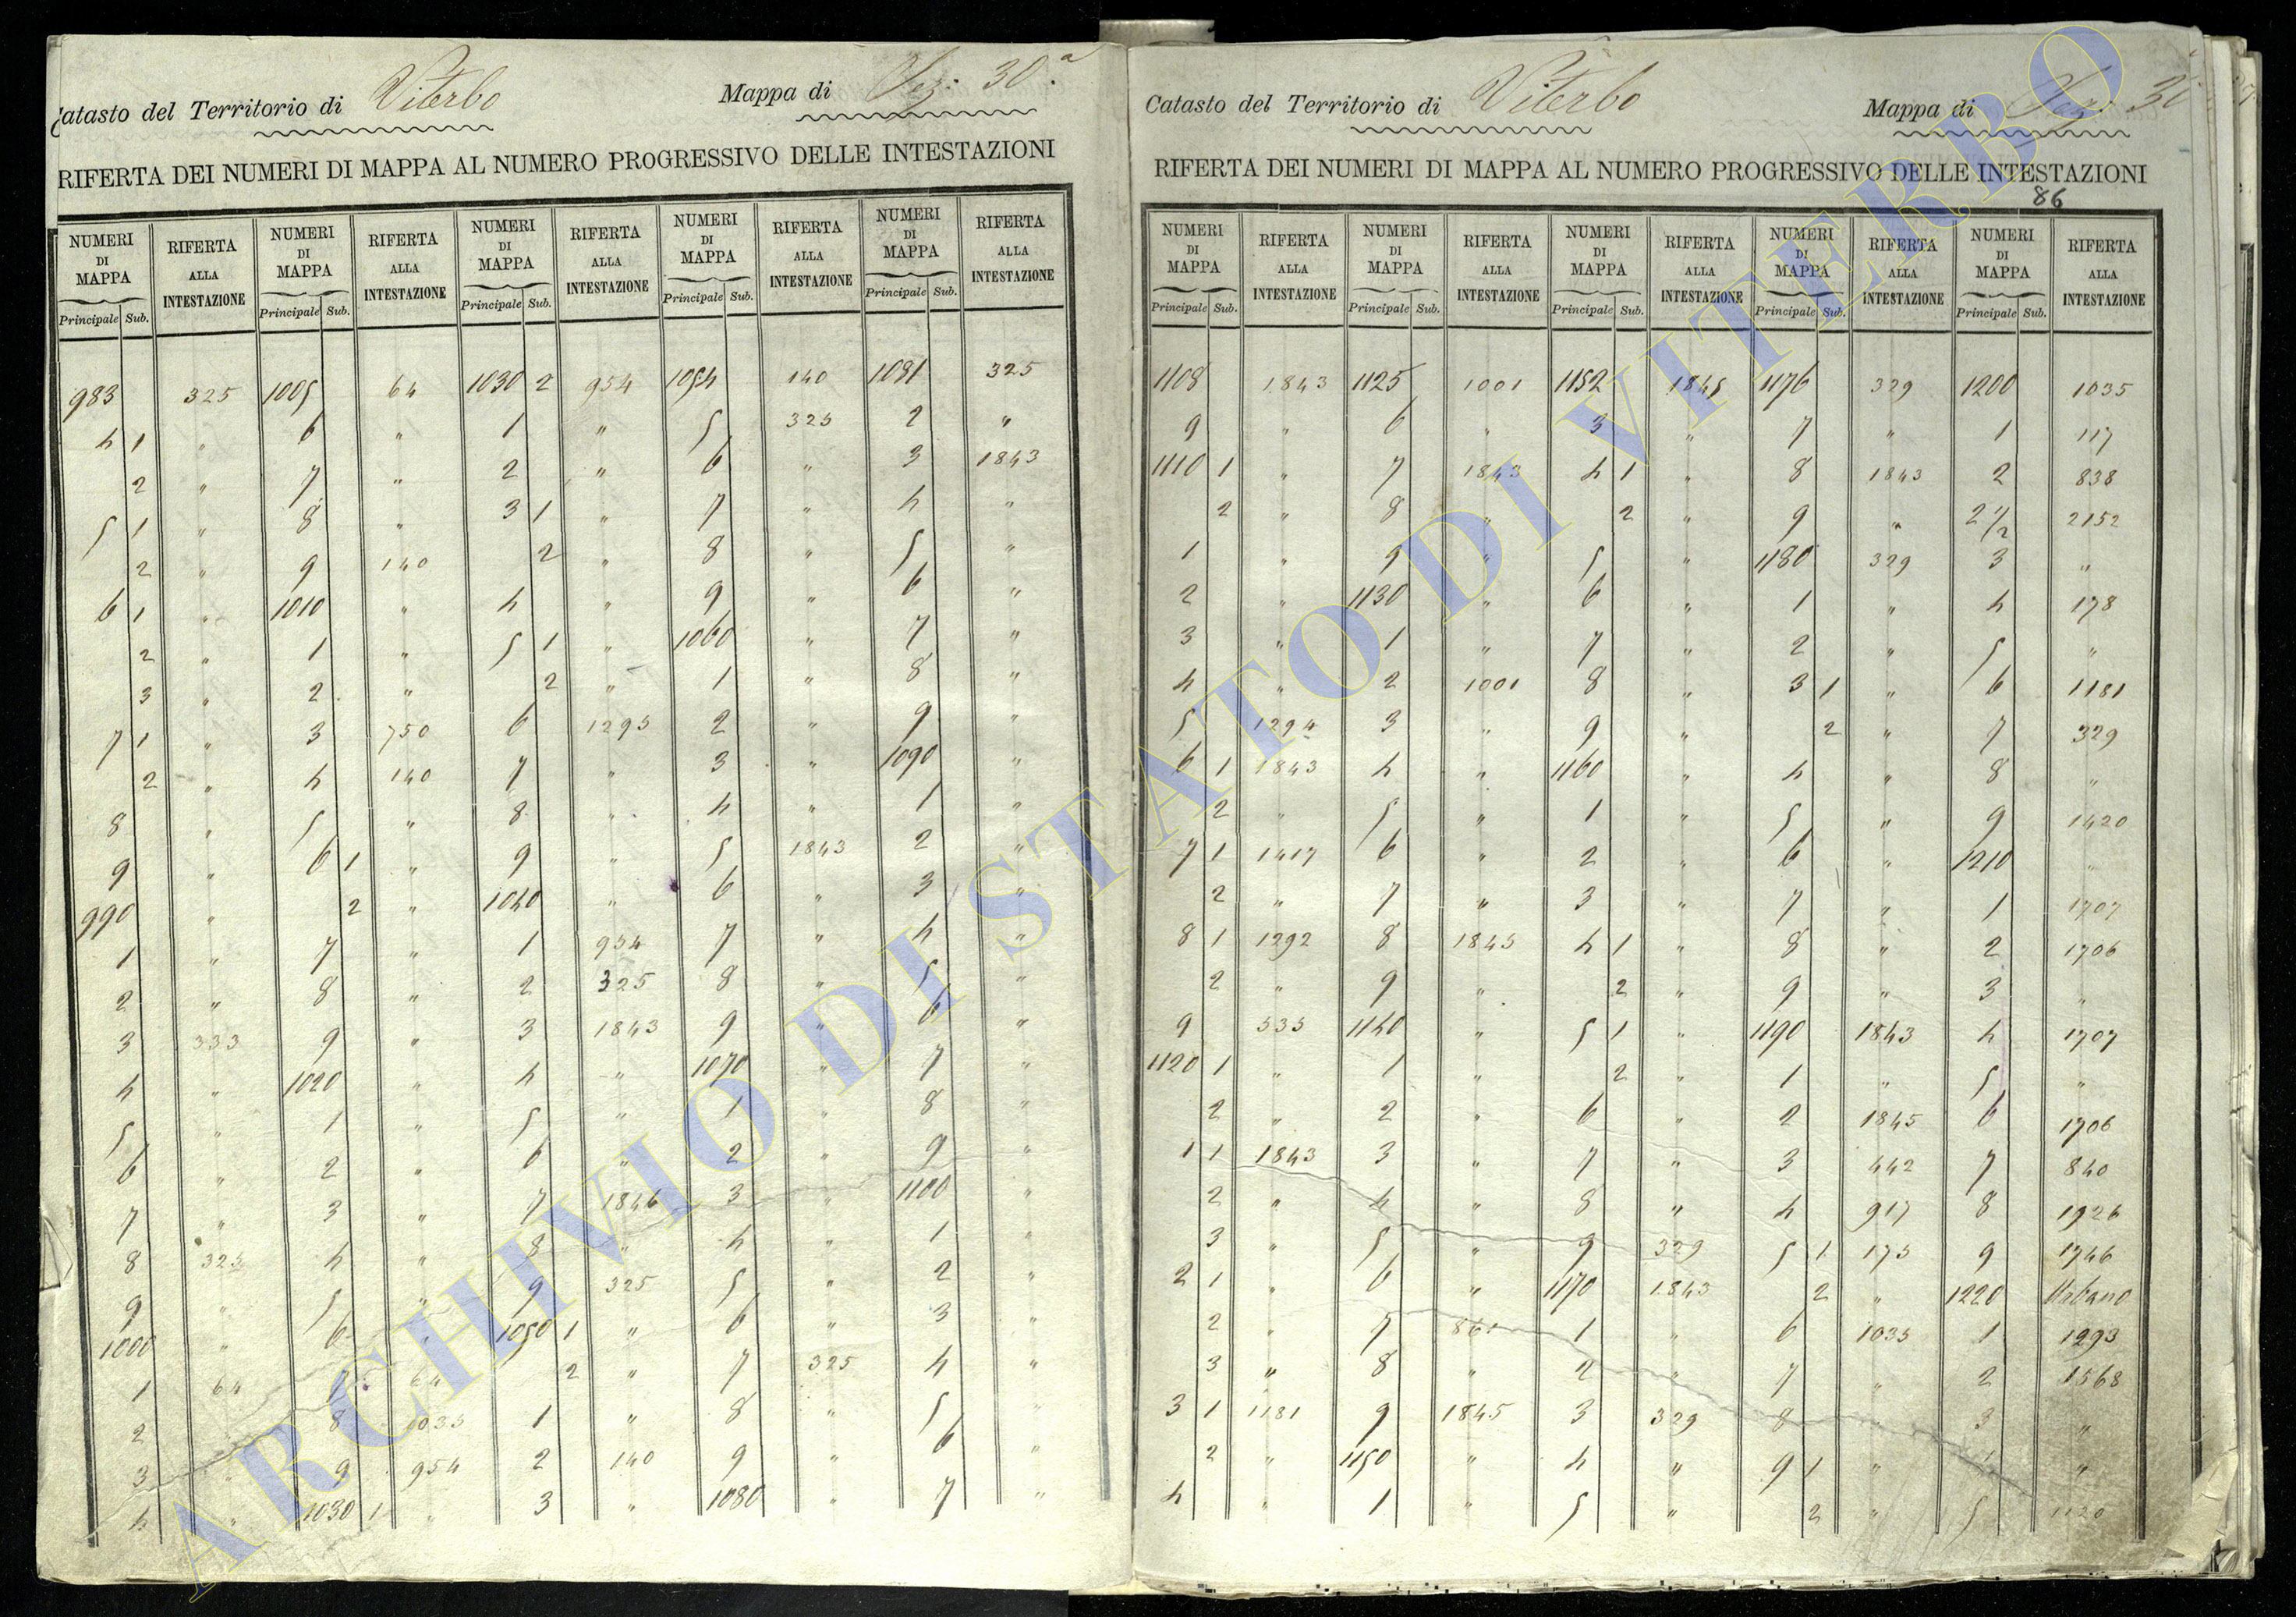 Catasto del Territorio di Viterbo Mappa di Sez. 30.a
RIFERTA DEI NUMERI DI MAPPA AL NUMERO PROGRESSIVO DELLE INTESTAZIONI
NUMERI DI MAPPA RIFERTA ALLA INTESTAZIONE NUMERI DI MAPPA RIFERTA ALLA INTESTAZIONE NUMERI DI MAPPA RIFERTA ALLA INTESTAZIONE NUMERI DI MAPPA RIFERTA ALLA INTESTAZIONE NUMERI DI MAPPA RIFERTA ALLA INTESTAZIONE
Principale Sub. Principale Sub. Principale Sub. Principale Sub. Principale Sub.
983 325 1005 64 1030 2 954 1054 140 1081 325
4 1 " 6 " 1 " 5 325 2 "
2 " 7 " 2 " 6 " 3 1843
5 1 " 8 " 3 1 " 7 " 4 "
2 " 9 140 2 " 8 " 5 "
6 1 " 1010 " 4 " 9 " 6 "
2 " 1 " 5 1 " 1060 " 7 "
3 " 2 " 2 " 1 " 8 "
7 1 " 3 750 6 1295 2 " 9 "
2 " 4 140 7 " 3 " 1090 "
8 " 5 " 8 " 4 " 1 "
9 " 6 1 " 9 " 5 1843 2 "
990 " 2 " 1040 " 6 " 3 "
1 " 7 " 1 954 7 " 4 "
2 " 8 " 2 325 8 " 5 "
3 333 9 " 3 1843 9 " 6 "
4 " 1020 " 4 " 1070 " 7 "
5 " 1 " 5 " 1 " 8 "
6 " 2 " 6 " 2 " 9 "
7 " 3 " 7 1846 3 " 1100 "
8 325 4 " 8 " 4 " 1 "
9 " 5 " 9 325 5 " 2 "
1000 " 6 " 1050 1 " 6 " 3 "
1 64 7 64 2 " 7 325 4 "
2 " 8 1035 1 " 8 " 5 "
3 " 9 954 2 140 9 " 6 "
4 " 1030 1 " 3 " 1080 " 7 "
Catasto del Territorio di Viterbo Mappa di Sez. 30
RIFERTA DEI NUMERI DI MAPPA AL NUMERO PROGRESSIVO DELLE INTESTAZIONI
86
NUMERI DI MAPPA RIFERTA ALLA INTESTAZIONE NUMERI DI MAPPA RIFERTA ALLA INTESTAZIONE NUMERI DI MAPPA RIFERTA ALLA INTESTAZIONE NUMERI DI MAPPA RIFERTA ALLA INTESTAZIONE NUMERI DI MAPPA RIFERTA ALLA INTESTAZIONE
Principale Sub. Principale Sub. Principale Sub. Principale Sub. Principale Sub.
1108 1843 1125 1001 1152 1845 1176 329 1200 1035
9 " 6 " 3 " 7 " 1 117
1110 1 " 7 1843 4 1 " 8 1843 2 838
2 " 8 " 2 " 9 " 2 1/2 2152
1 " 9 " 5 " 1180 329 3 "
2 " 1130 " 6 " 1 " 4 178
3 " 1 " 7 " 2 " 5 "
4 " 2 1001 8 " 3 1 " 6 1181
5 1294 3 " 9 " 2 " 7 329
6 1 1843 4 " 1160 " 4 " 8 "
2 " 5 " 1 " 5 " 9 1420
7 1 1417 6 " 2 " 6 " 1210 "
2 " 7 " 3 " 7 " 1 1707
8 1 1292 8 1845 4 1 " 8 " 2 1706
2 " 9 " 2 " 9 " 3 "
9 535 1140 " 5 1 " 1190 1843 4 1707
1120 1 " 1 " 2 " 1 " 5 "
2 " 2 " 6 " 2 1845 6 1706
1 1 1843 3 " 7 " 3 442 7 840
2 " 4 " 8 " 4 917 8 1926
3 " 5 " 9 329 5 1 175 9 1746
2 1 " 6 " 1170 1843 2 " 1220 Urbano
2 " 7 861 1 " 6 1035 1 1293
3 " 8 " 2 " 7 " 2 1568
3 1 1181 9 1845 3 329 8 " 3 "
2 " 1150 " 4 " 9 1 " "
4 " 1 " 5 " 2 " 5 1120
ARCHIVIO DI STATO DI VITERBO